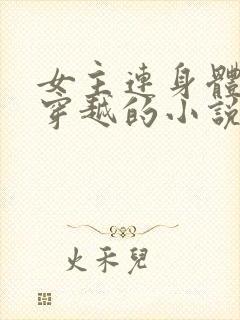 女主連身體
穿越的小說
火禾兒